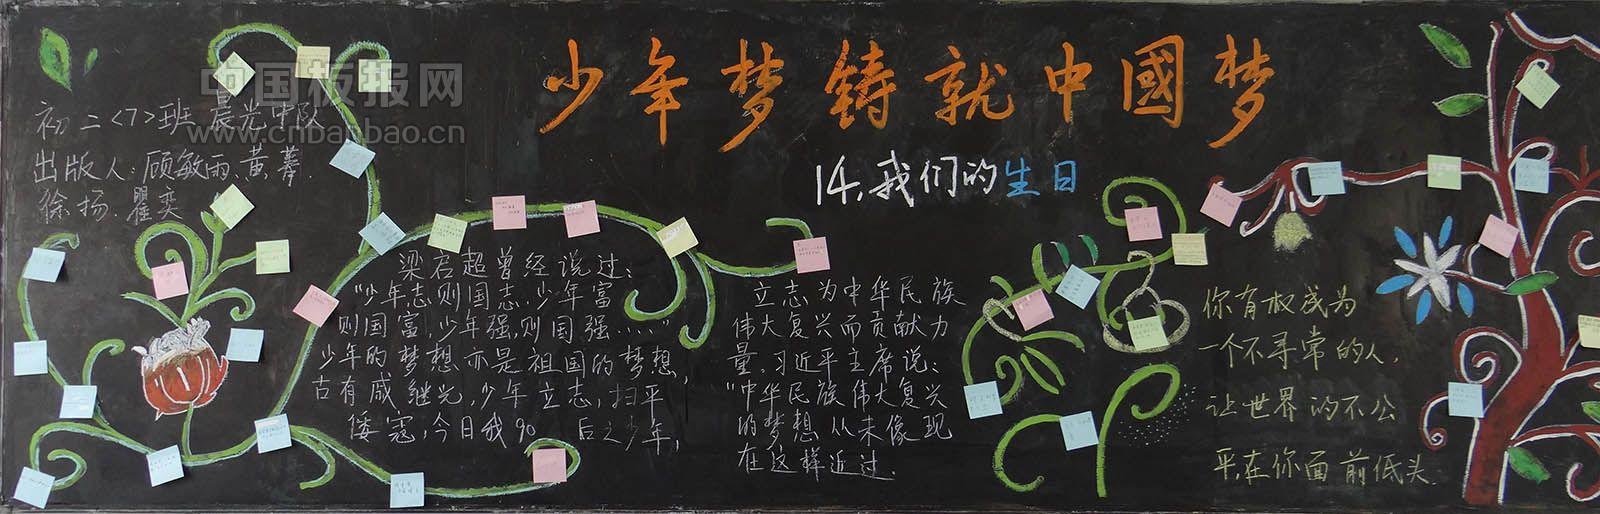 少年梦铸就中國梦
14,我们的生日
中国板报网
www.cnbanbao.cn
初二<7>班 晨光中队
出版人:顾敏雨、黄
徐扬、瞿奕
梁启超曾经说过:
“少年志则国志,少年富
则国富,少年强,则国强……”
少年的梦想亦是祖国的梦想,
古有戚继光,少年立志,扫平
倭寇,今日我90后之少年,
立志为中华民族
伟大复兴而贡献力
量,习近平主席说:
“中华民族伟大复兴
的梦想从未像现
在这样近过.
你有权成为
一个不寻常的人,
让世界的不公
平,在你面前低头.